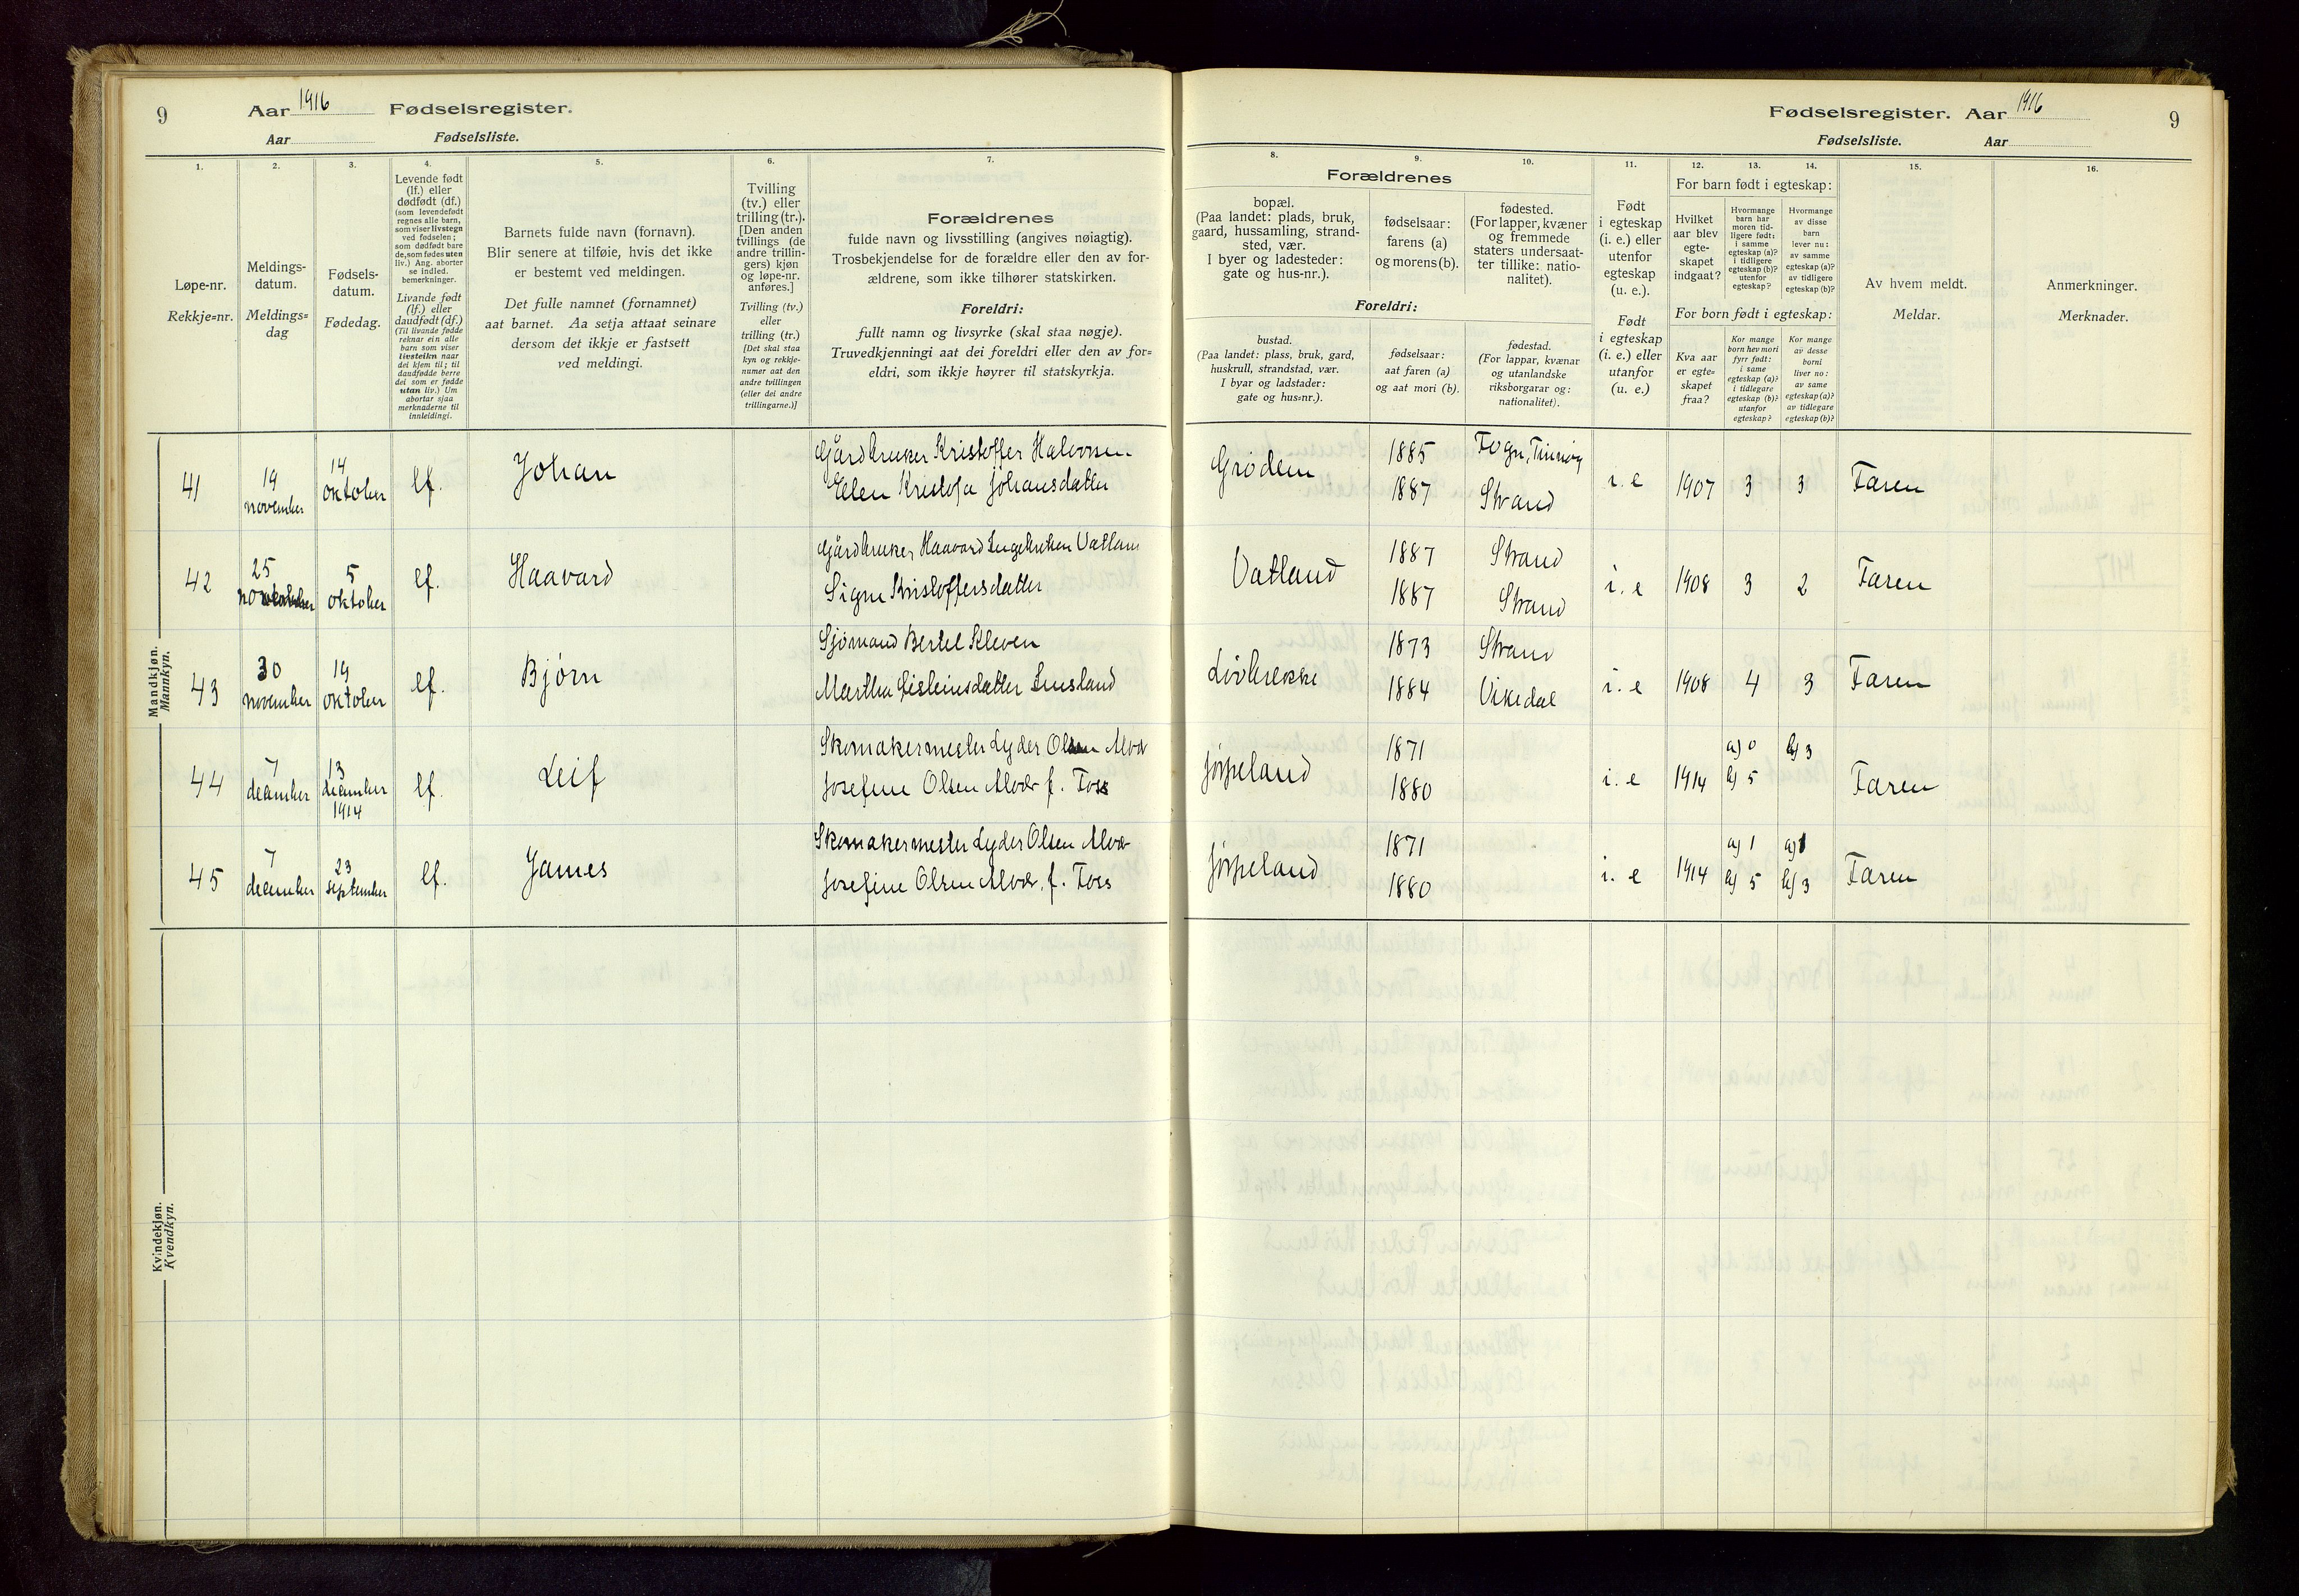 9
Aar 1916 Fødselsregister.
Aar Fødselsliste.
1.
2.
3.
4.
5.
6.
7.
Løpe-nr.
Rekkje=nr.
Meldings-
datum.
Meldings=
dag
Fødsels-
datum.
Fødedag.
Levende født
(lf.) eller
dødfødt (df.)
(som levendefødt
regnes alle barn,
som viser livstegn
ved fødselen;
som dødfødt bare
de, som fødes uten
liv.) Ang. aborter
se indled.
bemerkninger.
Livande født
(lf.) eller
daudfødt (df.)
(Til livande fødde
reknar ein alle
barn som viser
livsteikn naar
dei kjem til; til
daudfødde berre
dei som er fødde
utan liv.) Um
abortar sjaa
merknaderne til
innleidingi.
Barnets fulde navn (fornavn).
Blir senere at tilføie, hvis det ikke
er bestemt ved meldingen.
Det fulle namnet (fornamnet)
aat barnet. Aa setja attaat seinare
dersom det ikkje er fastsett
ved meldingi.
Tvilling
(tv.) eller
trilling (tr.).
[Den anden
tvillings (de
andre trillin-
gers) kjøn
og løpe-nr.
anføres.]
Tvilling (tv.)
eller
trilling (tr.)
[Det skal staa
kyn og rekkje-
numer aat den
andre tvillingen
(eller dei andre
trillingarne.)]
Forældrenes
fulde navn og livsstilling (angives nøiagtig).
Trosbekjendelse for de forældre eller den av for-
ældrene, som ikke tilhører statskirken.
Foreldri:
fullt namn og livsyrke (skal staa nøgje).
Truvedkjenningi aat dei foreldri eller den av for=
eldri, som ikkje høyrer til statskyrkja.
Mandkjøn.
Mannkyn.
41 19 november 14 oktober lf. Johan
Gårdbruker Kristoffer Halvorsen
Elen Kristofa Johansdatter
42 25 november 5 oktober lf. Haavard
Gårdbruker Haavard Ingebretsen Vatland
Signe Kristoffersdatter
43 30 november 19 oktober lf. Bjørn
Sjømand Bertel Kleven
Martha Eisteinsdatter Imsland
44 7 december 13 december 1914 lf. Leif
Skomakermester Lyder Olsen Alvær
Josefine Olsen Alvær f. Foss
45 7 december 23 september lf. James
Skomakermester Lyder Olsen Alvær
Josefine Olsen Alvær, f. Foss
Kvindekjøn.
Kvendkyn.
Fødselsregister. Aar 1916
9
Fødselsliste. Aar
8.
9.
10.
11.
12.
13.
14.
15.
16.
Forældrenes
bopæl.
(Paa landet: plads, bruk,
gaard, hussamling, strand-
sted, vær.
I byer og ladesteder:
gate og hus-nr.).
fødselsaar:
farens (a)
og morens (b).
fødested.
(For lapper, kvæner
og fremmede
staters undersaat-
ter tillike: natio-
nalitet).
Foreldri:
bustad.
(Paa landet: plass, bruk, gard,
huskrull, strandstad, vær.
I byar og ladstader:
gate og hus=nr.).
fødselsaar:
aat faren (a)
og aat mori (b).
fødestad.
(For lappar, kvænar
og utanlandske
riksborgarar og:
nationalitet).
Født
i egteskap
(i. e.) eller
utenfor
egteskap
(u. e.).
Født
i egteskap
(i. e.) eller
utanfor
(u. e.)
For barn født i egteskap:
Hvilket
aar blev
egte-
skapet
indgaat?
Hvormange
barn har
moren tid-
ligere født:
i samme
egteskap (a)?
i tidligere
egteskap (b)?
utenfor
egteskap?
Hvormange
av disse
barn
lever nu:
av samme
egteskap (a)?
av tidligere
egteskap (b)?
For born født i egteskap:
Kva aar
er egte=
skapet
fraa?
Kor mange
born hev mori
fyrr født:
i same
egteskap (a)?
i tidlegare
egteskap (b)?
utanfor
egteskap?
Kor mange
av desse
borni
liver no:
av same
egteskap (a)?
av tidlegare
egteskap (b)?
Av hvem meldt.
Meldar.
Anmerkninger.
Merknader.
Grødem 1885 Fogn,
1887 Strand i. e 1907 3 3 Faren
Vatland 1887 Strand
1887 Strand i. e 1908 3 2 Faren
Løvbrekke 1873 Strand
1884 Vikedal i. e 1908 4 3 Faren
Jørpeland 1871
1880 i. e 1914 a) 0 b) 5 b) 3 Faren
Jørpeland 1871
1880 i. e 1914 a) 1 b) 5 a) 1 b) 3 Faren